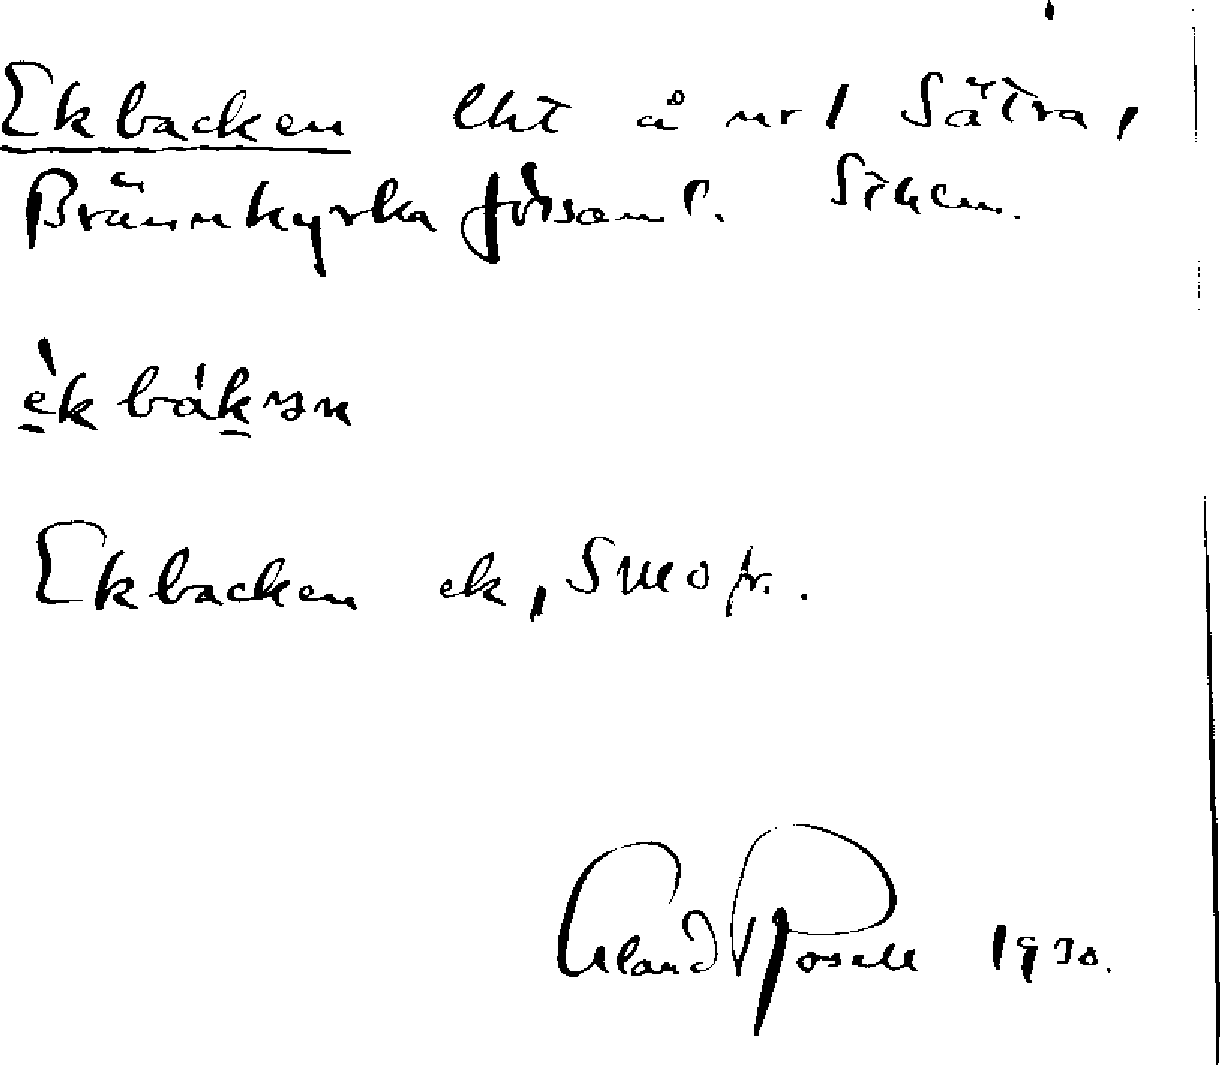 Ekbacken lht å nr 1 Sätra,
Brännkyrka församl. Sthlm.
è̱k báḵən
Ekbacken ek, Smopr.
Erland Rosell 1930.